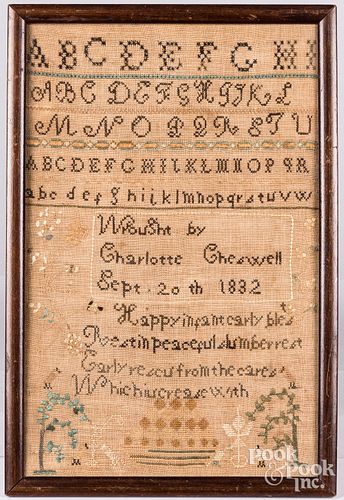 A B C D E F G H I
A B C D E F G H I J K L
M N O P Q R S T U
A B C D E F G H I J K L K M N O P Q R
a b c d e f g h i j k l m n o p q r s t u v w
Wrought by
Charlotte Cheswell
Sept 20th 1832
Happy infant early blest
Rest in peaceful slumber rest
Early rescu from the cares
Which increase with
POOK
& POOK
INC.